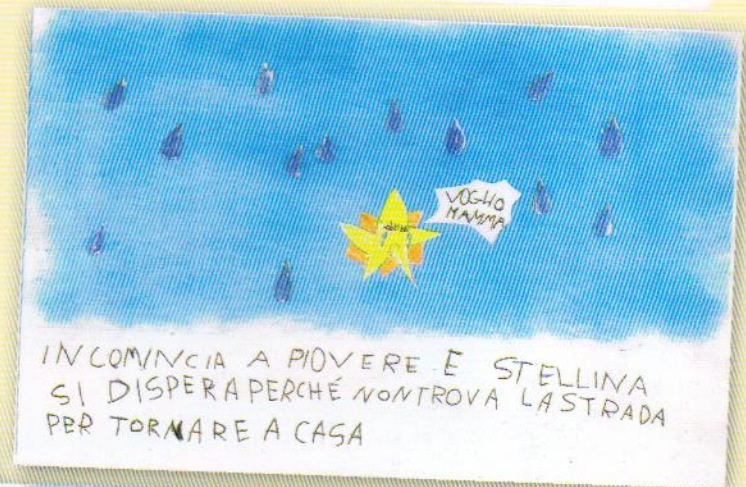 VOGLIO
MAMMA
INCOMINCIA A PIOVERE E STELLINA
SI DISPERA PERCHÉ NON TROVA LA STRADA
PER TORNARE A CASA